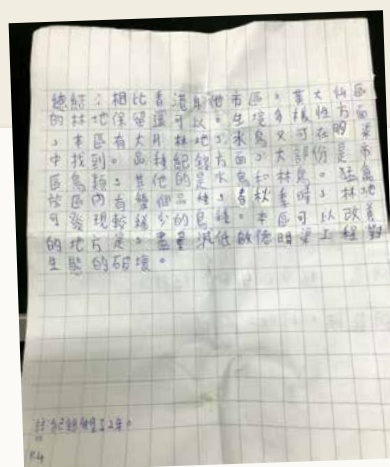 總結：相比香港其他市區，黃大仙區
的林地保留還可以。生境多樣性方面
，本區有大片林地，水鳥又可在明渠
中找到。品種紀錄方面，大部份是市
區鳥類，其他的是水鳥和林鳥。猛禽
於區內有幾個品種，春秋季時，林地
可發現較稀少的鳥種。本區可以改善
的地方是，盡量減低啟德明渠工程對
生態的破壞。
註：紀錄做了2年。
P.4